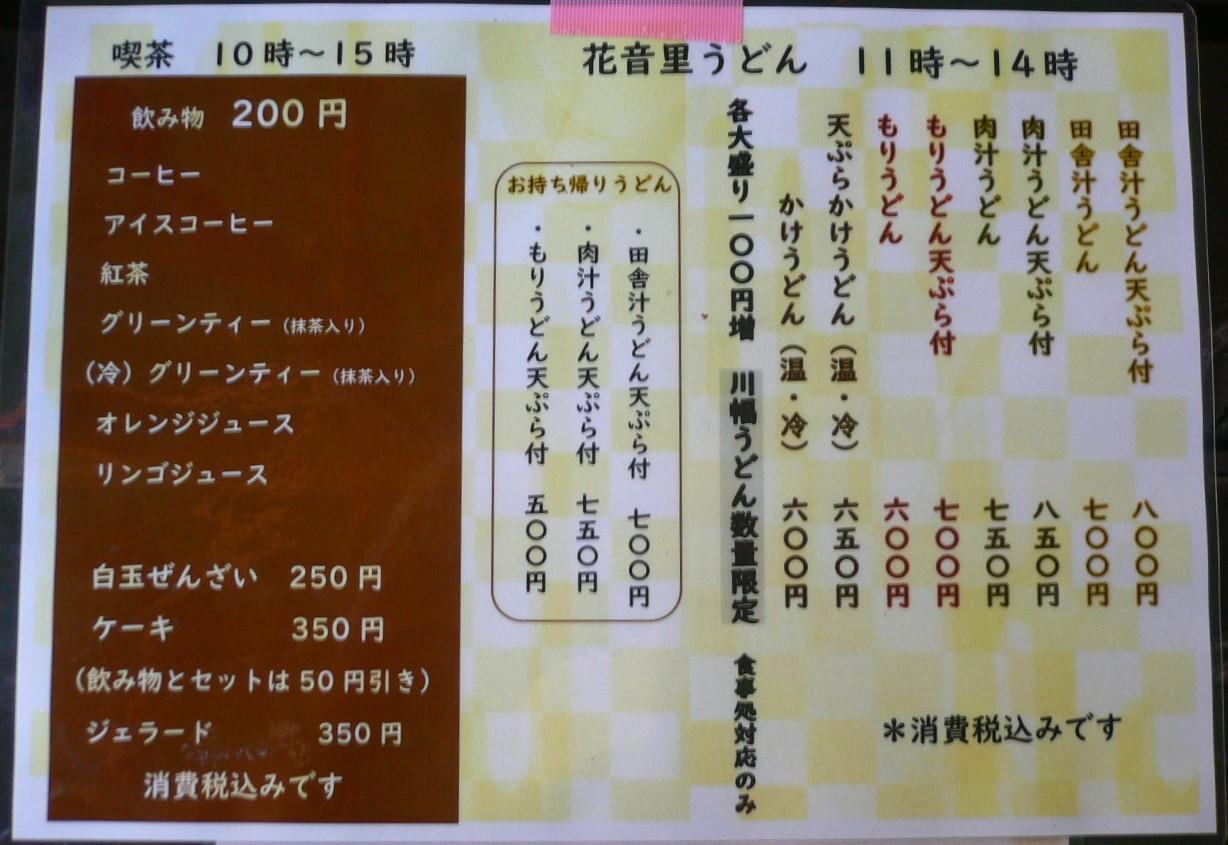 喫茶 10時～15時
飲み物 200円
コーヒー
アイスコーヒー
紅茶
グリーンティー（抹茶入り）
（冷）グリーンティー（抹茶入り）
オレンジジュース
リンゴジュース
白玉ぜんざい 250円
ケーキ 350円
（飲み物とセットは50円引き）
ジェラード 350円
消費税込みです
花音里うどん 11時～14時
田舎汁うどん天ぷら付 八〇〇円
田舎汁うどん 七〇〇円
肉汁うどん天ぷら付 八五〇円
肉汁うどん 七五〇円
もりうどん天ぷら付 七〇〇円
もりうどん 六〇〇円
天ぷらかけうどん（温・冷） 六五〇円
かけうどん（温・冷） 六〇〇円
各大盛り一〇〇円増 川幅うどん数量限定 食事処対応のみ
お持ち帰りうどん
・田舎汁うどん天ぷら付 七〇〇円
・肉汁うどん天ぷら付 七五〇円
・もりうどん天ぷら付 五〇〇円
＊消費税込みです